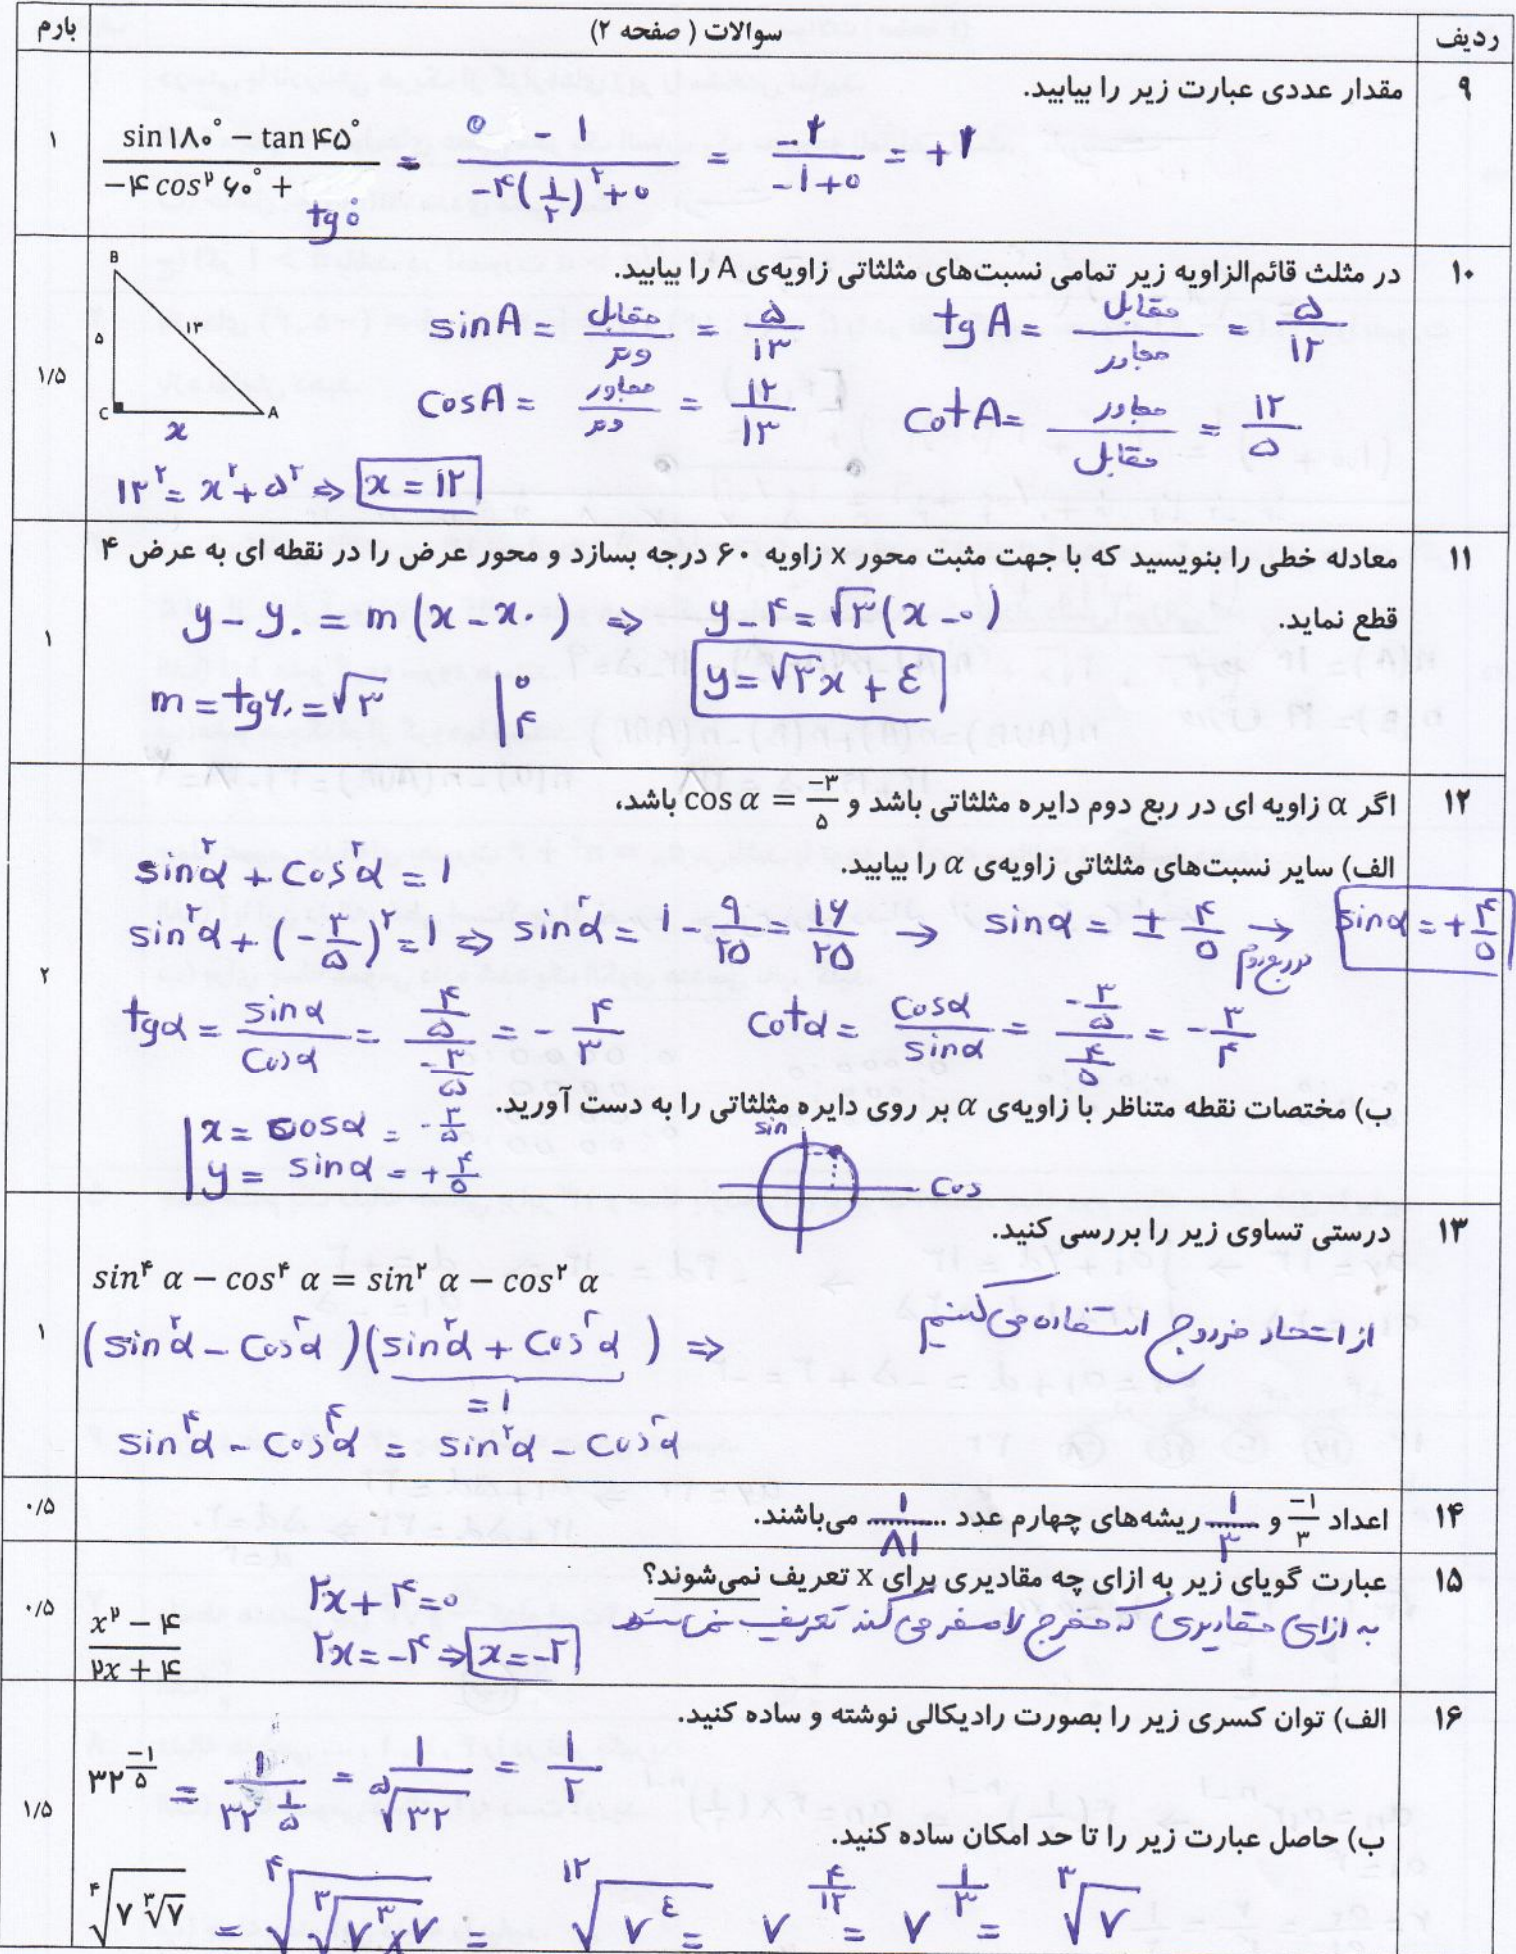 ردیف سوالات ( صفحه ۲) بارم
۹ مقدار عددی عبارت زیر را بیابید.
۱ (sin ۱۸۰° − tan ۴۵°)/(−۴ cos² ۶۰° + tg ۰°) = (۰ − ۱)/(−۴(۱/۲)² + ۰) =
۱۰ در مثلث قائم‌الزاویه زیر تمامی نسبت‌های مثلثاتی زاویه‌ی A را بیابید.
B ۱۳ ۵ C A x
sin A = مقابل/وتر = ۵/۱۳ tg A = مقابل/مجاور = ۵/۱۲
۱/۵ cos A = مجاور/وتر = ۱۲/۱۳ cot A = مجاور/مقابل = ۱۲/۵
۱۳² = x² + ۵² ⇒ x = ۱۲
۱۱ معادله خطی را بنویسید که با جهت مثبت محور x زاویه ۶۰ درجه بسازد و محور عرض را در نقطه ای به عرض ۴
قطع نماید.
y − y۰ = m (x − x۰) ⇒ y − ۴ = √۳ (x − ۰)
۱ m = tg ۶۰ = √۳ |۰ ۴ y = √۳x + ٤
۱۲ اگر α زاویه ای در ربع دوم دایره مثلثاتی باشد و cos α = −۳/۵ باشد،
الف) سایر نسبت‌های مثلثاتی زاویه‌ی α را بیابید.
sin²α + cos²α = ۱
sin²α + (−۳/۵)² = ۱ ⇒ sin²α = ۱ − ۹/۲۵ = ۱۶/۲۵ → sinα = ± ۴/۵ → در ربع دوم sinα = +۴/۵
۲ tgα = sinα/cosα = (۴/۵)/(−۳/۵) = −۴/۳ cotα = cosα/sinα = (−۳/۵)/(۴/۵) = −۳/۴
ب) مختصات نقطه متناظر با زاویه‌ی α بر روی دایره مثلثاتی را به دست آورید.
x = cosα = −۳/۵
y = sinα = +۴/۵
sin cos
۱۳ درستی تساوی زیر را بررسی کنید.
sin⁴ α − cos⁴ α = sin² α − cos² α
۱ (sin²α − cos²α)(sin²α + cos²α) ⇒ از اتحاد مزدوج استفاده می‌کنیم
= ۱
sin⁴α − cos⁴α = sin²α − cos²α
۱۴ اعداد −۱/۳ و ۱/۳ ریشه‌های چهارم عدد ۱/۸۱ می‌باشند. ۰/۵
۱۵ عبارت گویای زیر به ازای چه مقادیری برای x تعریف نمی‌شوند؟
۰/۵ (x² − ۴)/(۲x + ۴) ۲x + ۴ = ۰
۲x = −۴ ⇒ x = −۲ به ازای مقادیری که مخرج را صفر می‌کند تعریف نمی‌شود
۱۶ الف) توان کسری زیر را بصورت رادیکالی نوشته و ساده کنید.
۱/۵ ۳۲^(−۱/۵) = ۱/۳۲^(۱/۵) = ۱/⁵√۳۲ = ۱/۲
ب) حاصل عبارت زیر را تا حد امکان ساده کنید.
⁴√(۷ ³√۷) = ⁴√(³√(۷³×۷)) = ¹²√(۷^٤) = ۷^(۴/۱۲) = ۷^(۱/۳) = ³√۷